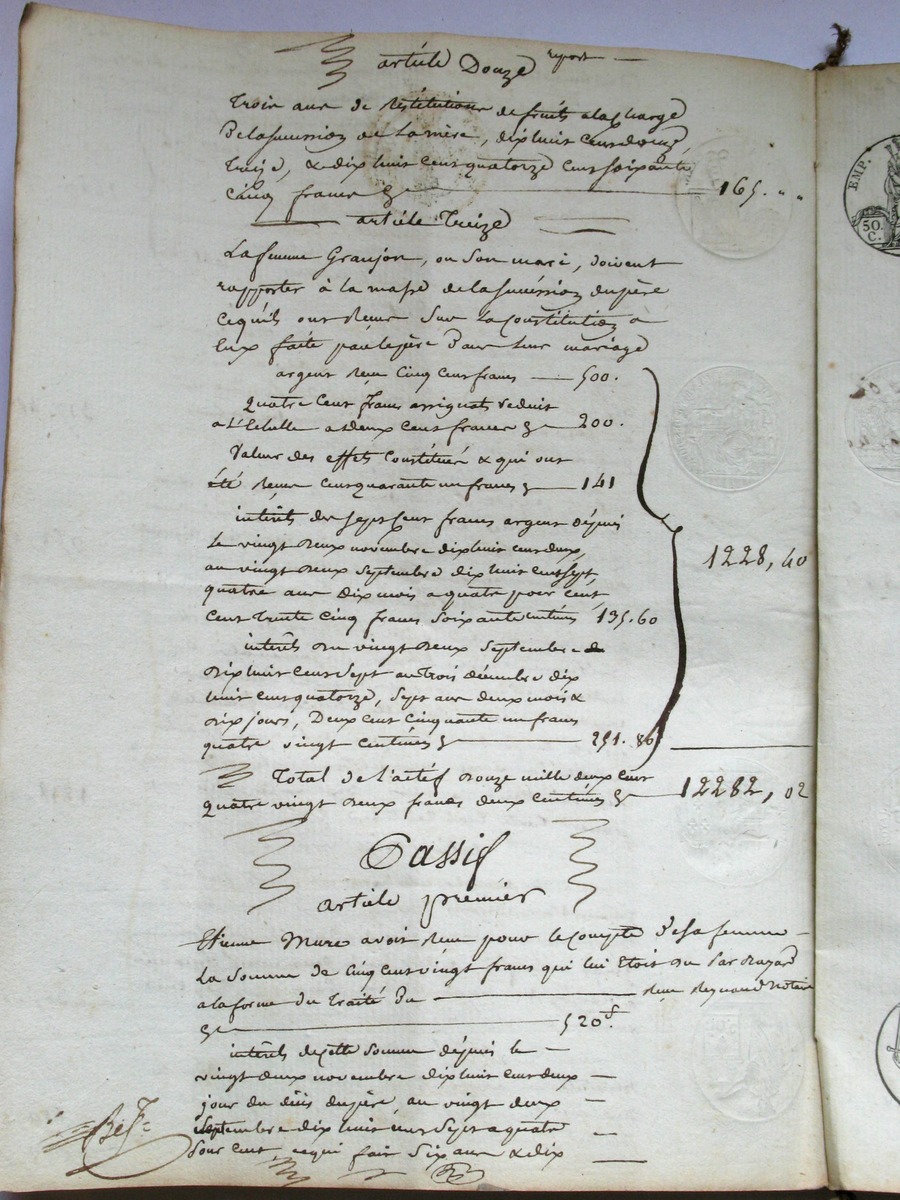 article Douze report
trois ans de restitutions de fruits a la charge
De la succession de la mere, dix huit cens douze,
treize, & dix huit cens quatorze cens soixante
cinq francs &c 165. " "
article Treize
La femme Granjon, ou son mari, doivent
rapporter à la masse de la succession du père
ce qu'ils ont reçu sur la constitution a
Eux faite par le père Dans leur mariage
argent reçu cinq cens francs 500.
quatre Cent francs assignats reduit
a l'Echelle a deux cent francs &c 200.
Valeur des effets constitués & qui ont
été reçus cens quarante un francs & 141
intérêts des sept cent francs argent depuis
le vingt deux novembre dix huit cens deux,
au vingt deux septembre dix huit cens sept,
quatre ans dix mois a quatre pour cent,
cens trente cinq francs soixante centimes 135.60
intérêts du vingt deux septembre
dix huit cens sept au trois décembre dix
huit cens quatorze, sept ans deux mois &
dix jours, Deux cent cinquante un francs
quatre vingt centimes & 251. 80
Total de l'actif douze mille deux cent
quatre vingt deux francs deux centimes & 12282, 02
1228, 40
Passif
article premier
Etienne Mure avoit reçu pour le compte de sa femme
La somme de cinq cent vingt francs qui lui Etoit du Par
a la forme du traité du reçu Reynaud Notaire
&c 520 f.
intérêts de cette somme depuis le
vingt deux novembre dix huit cens deux
jour du décès du père, au vingt deux
septembre dix huit cens sept a quatre
pour cent, ce qui fait six ans & dix
EMP.
50.
C.